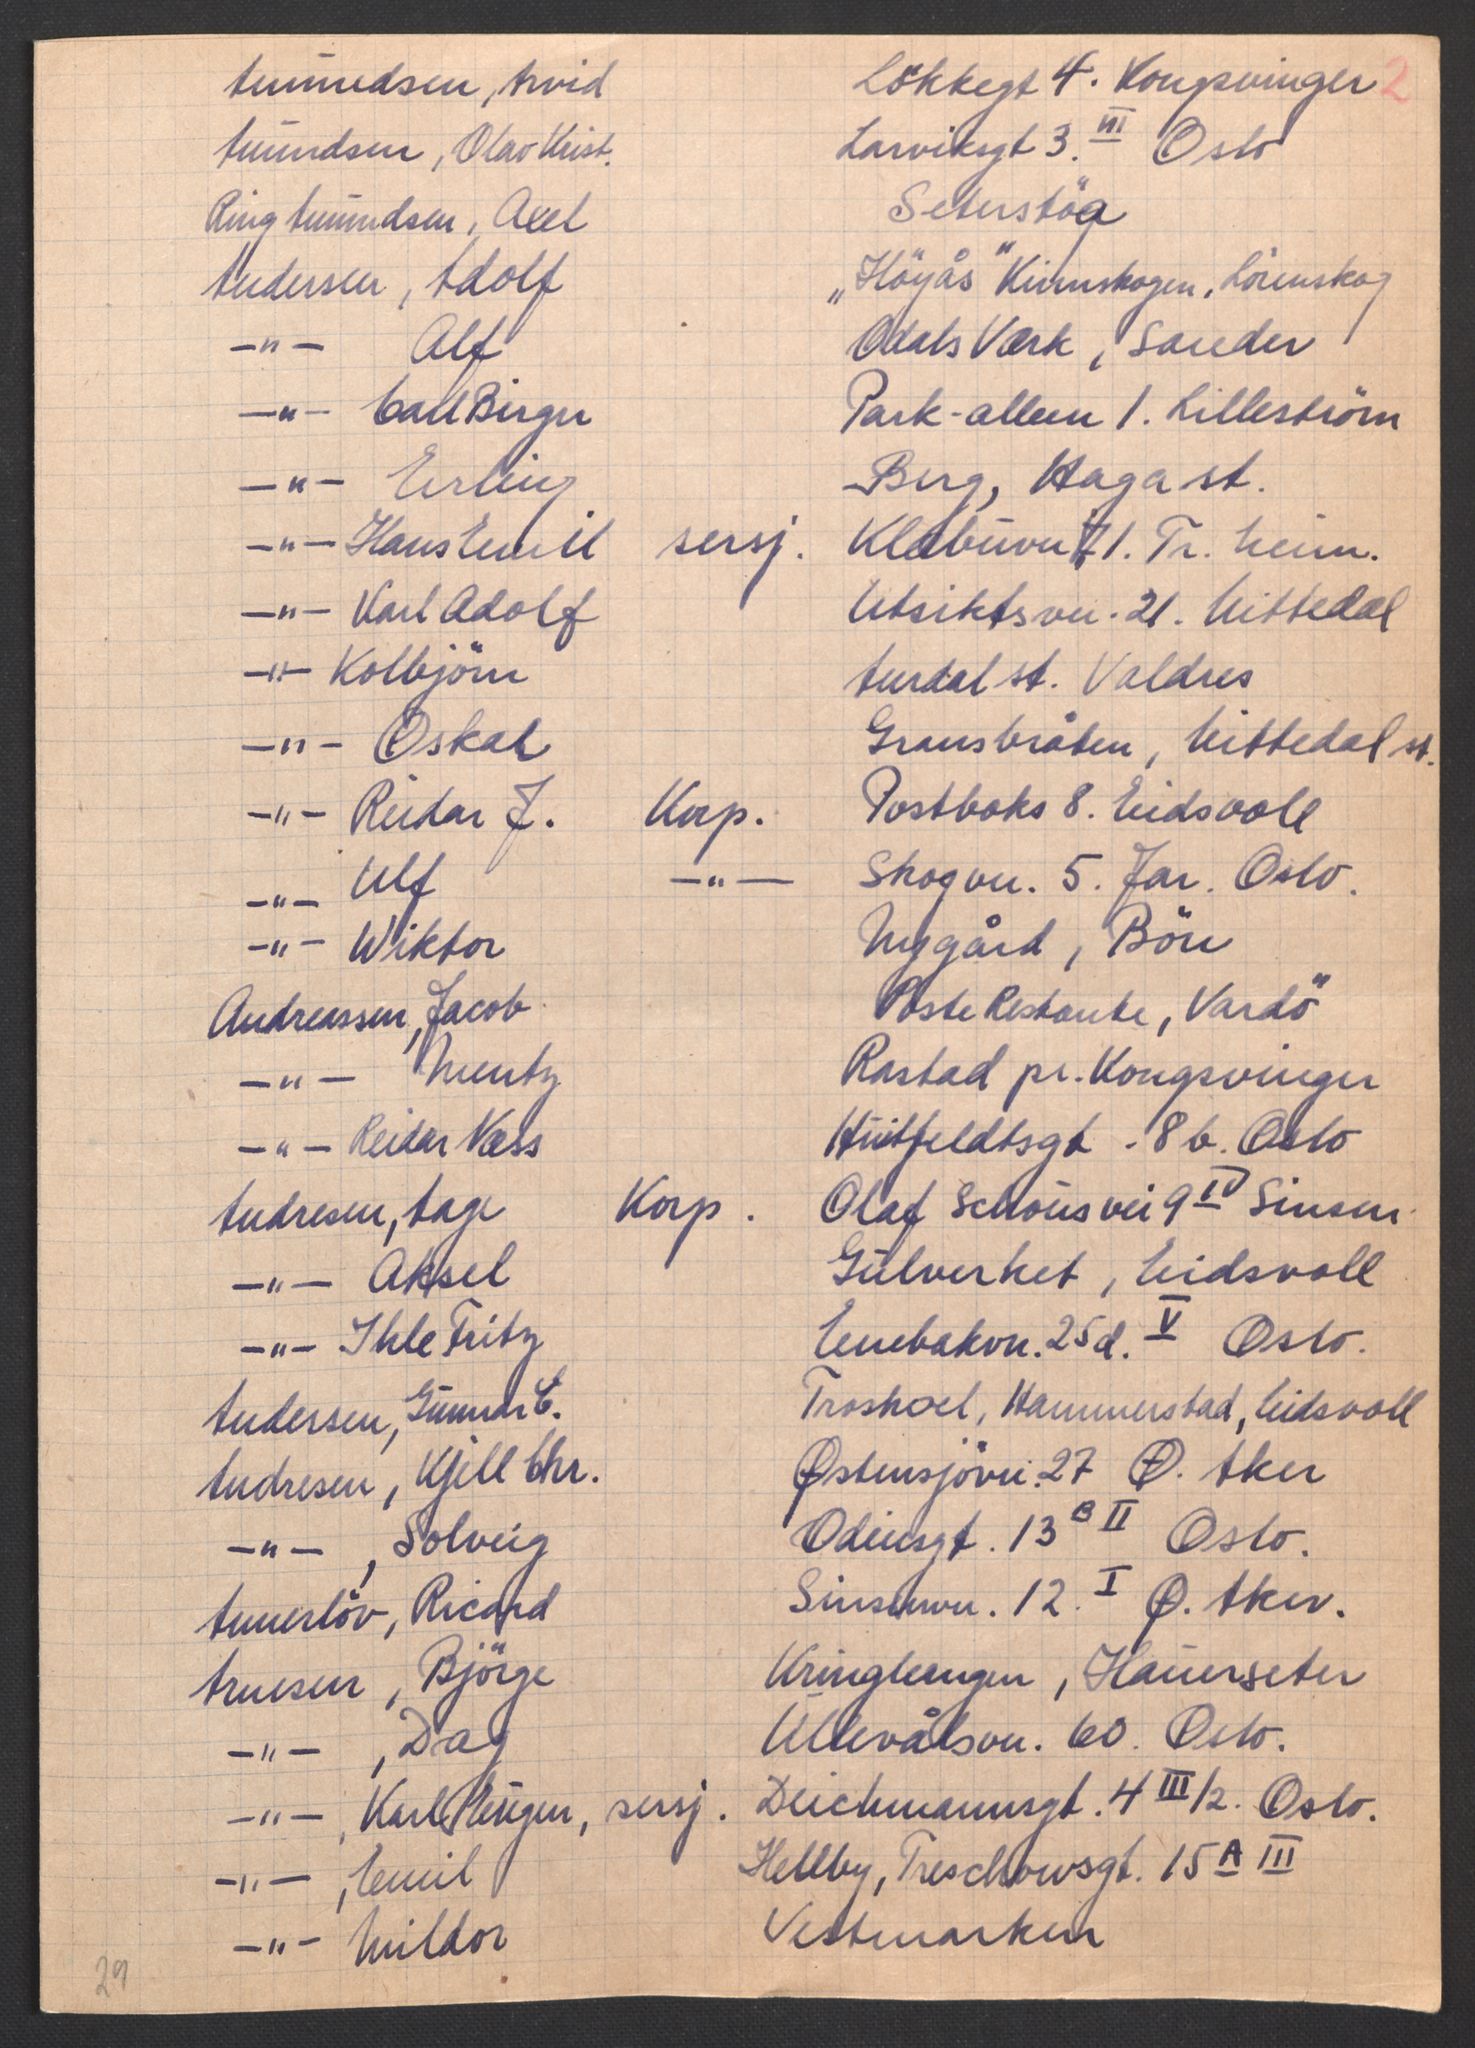 Amundsen, Arvid Lökkegt 4. Kongsvinger 2
Amundsen, Olav Krist. Larviksgt 3. III Oslo
Ring Amundsen, Axel Seterstöa
Andersen, Adolf "Höyås" Kurnskogen, Lörenskog
—"— Alf Odals Værk, Sander
—"— Carl Birger Park-alleen 1. Lilleström
—"— Erling Berg, Haga st.
—"— Hans Emil sersj. Klæbuvei 71. Tr. heim.
—"— Karl Adolf Utsiktsvei. 21. Nittedal
—"— Kolbjörn Aurdal st. Valdres
—"— Oskar Gransbråten, Nittedal st.
—"— Reidar J. Korp. Postboks 8. Eidsvoll
—"— Ulf —"— Skogvn. 5. Jar. Oslo.
—"— Wiktor Nygård, Bön
Andreassen, Jacob Poste Restante, Vardö
—"— Mentz Rastad pr. Kongsvinger
—"— Reidar Næss Huitfeldtsgt. 8 b. Oslo
Andresen, Aage Korp. Olaf Schousvei 9 IV Sinsen
—"— Aksel Gullverket, Eidsvoll
—"— Ihle Fritz Enebakvn. 25 d. V Oslo.
Andersen, Gunnar E. Troshoel, Hammerstad, Eidsvoll
Andresen, Kjell Chr. Østensjövei. 27 Ø. Aker
—"—, Solveig Odinsgt. 13 B II Oslo.
Annerlöv, Ricard Sinsenvn. 12. I Ø. Aker.
Arnesen, Björge Kringleengen, Hauerseter
—"—, Dag Ullevålsvn. 60. Oslo.
—"—, Karl Jörgen, sersj. Deichmannsgt. 4 III/2. Oslo.
—"—, Emil Hellby, Treschowsgt. 15 A III
—"— Mildor Vestmarken
29